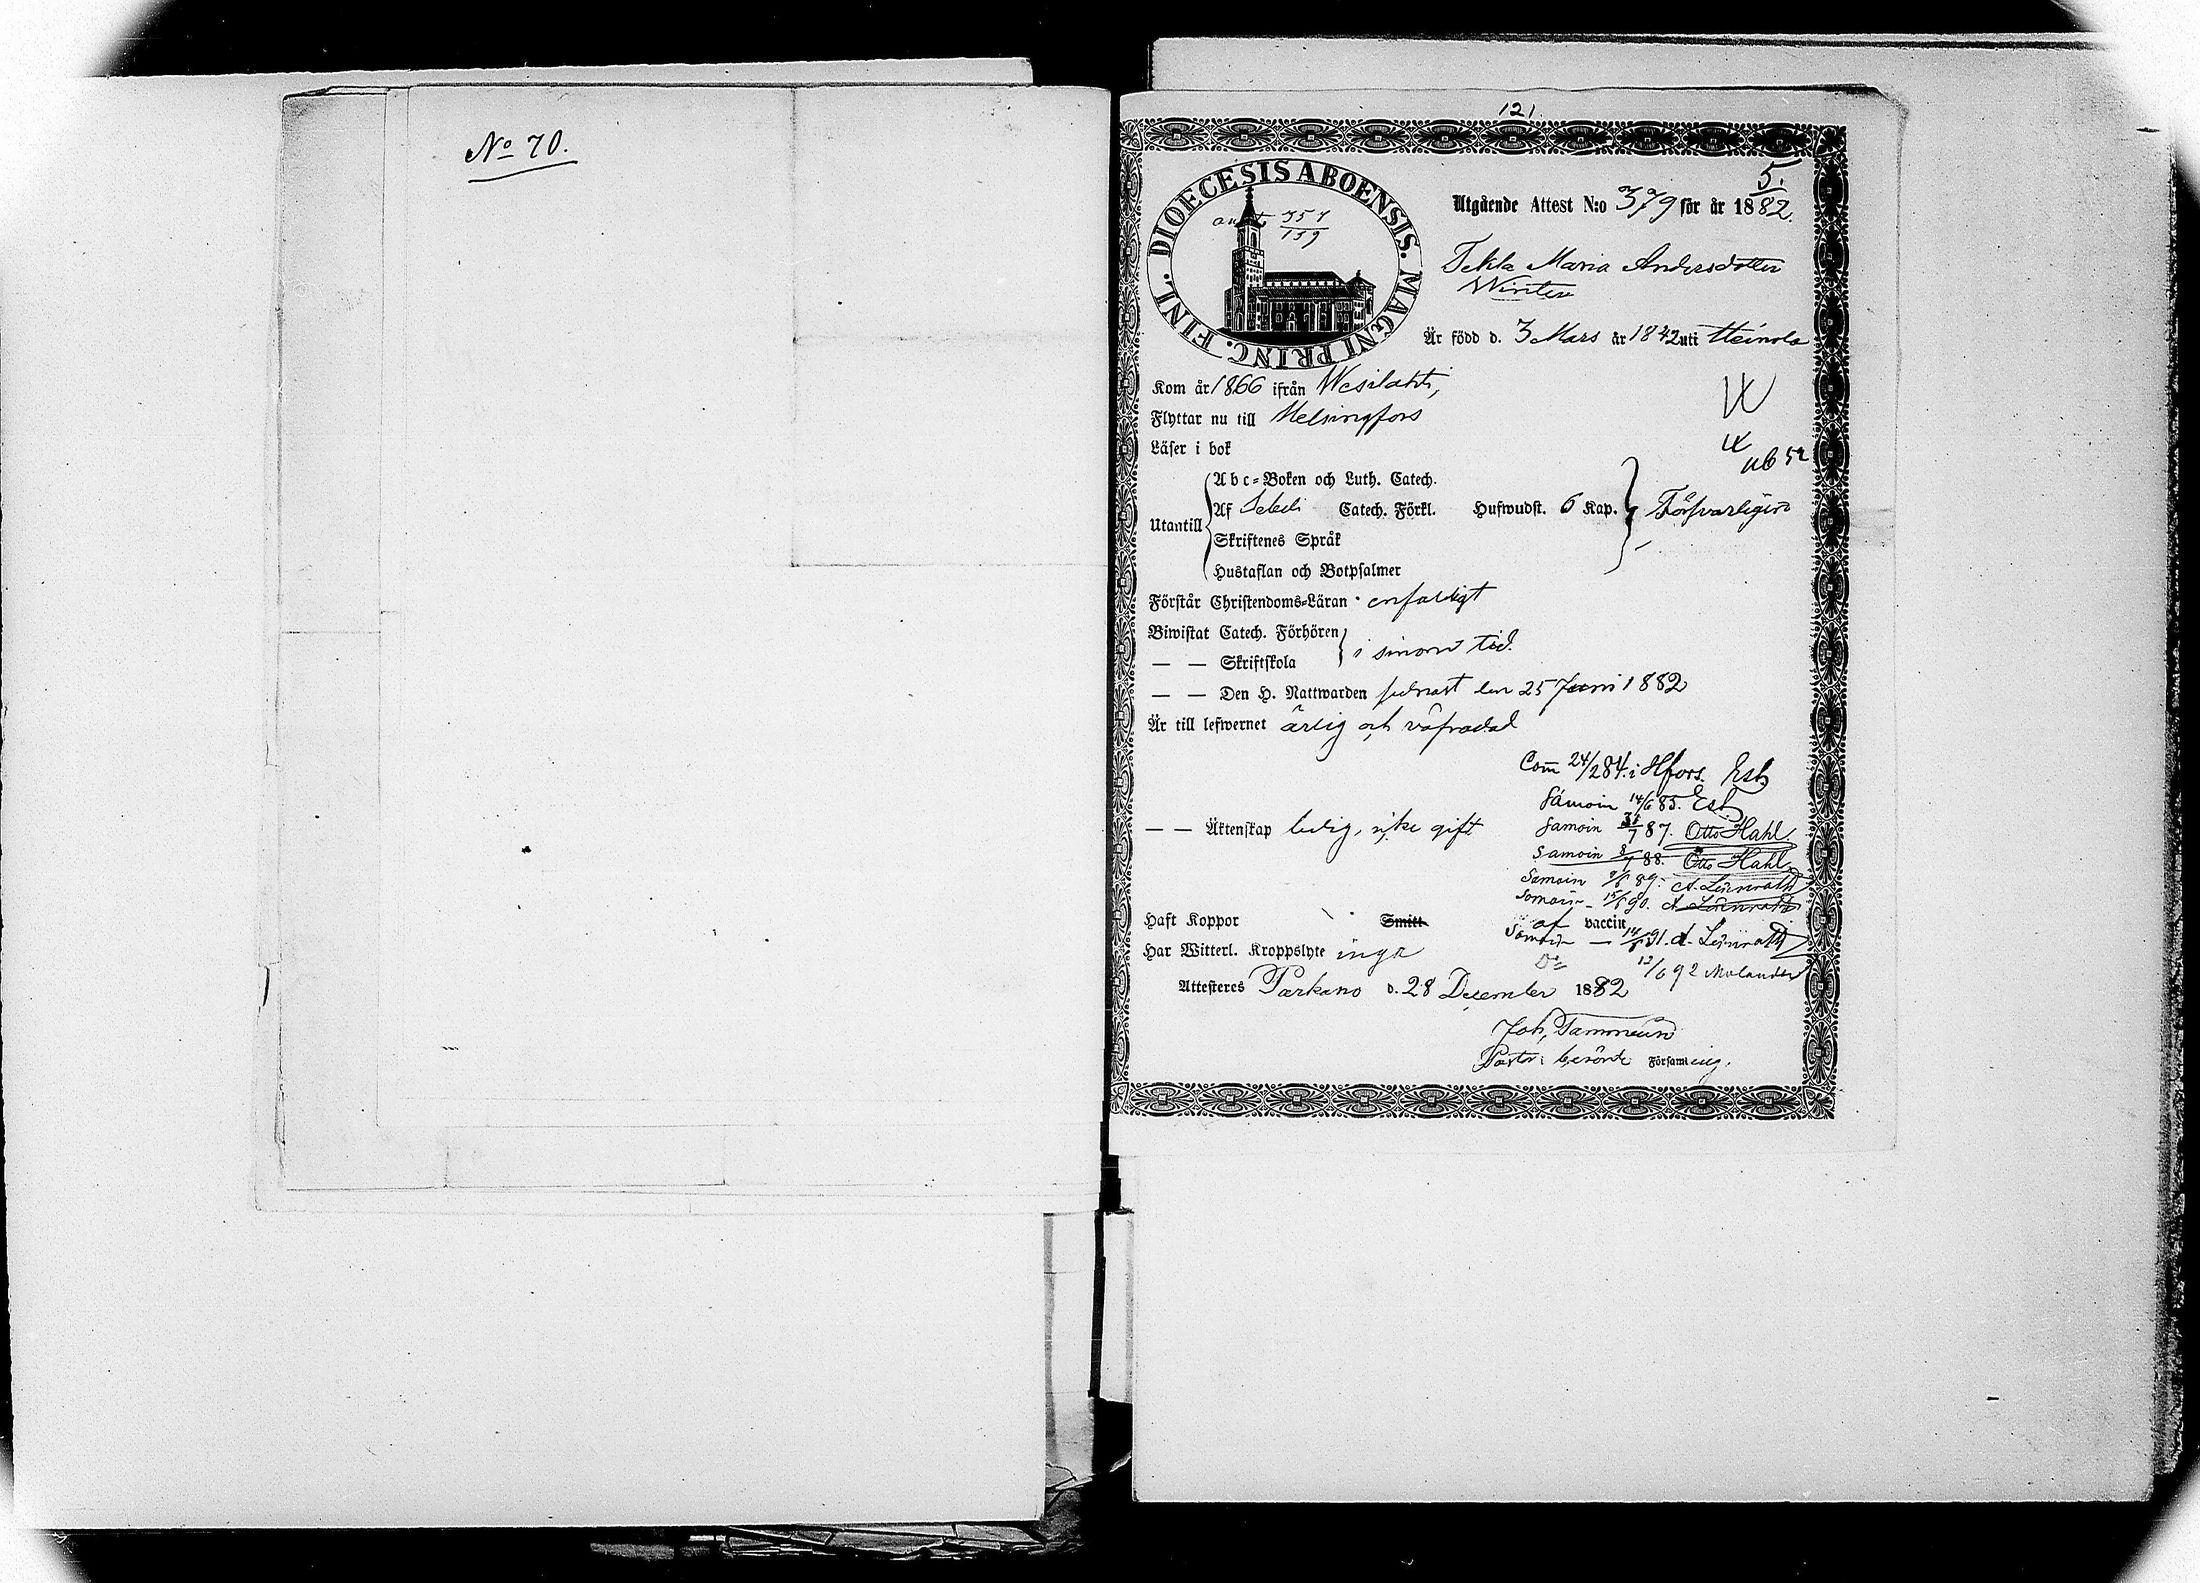 No 70.
121.
DIOECESIS ABOENSIS. MAGNI PRINC. FINL.
351
159
5.
Utgående Attest N:o 379 för år 1882.
Tekla Maria Andersdotter
Winter
Är född d. 3 Mars år 1842 uti Heinola
Kom år 1866 ifrån Wesilahti,
Flyttar nu till Helsingfors
Läser i bok
Utantill
Abc-Boken och Luth. Catech.
Af Catech. Förkl. Hufwudst. 6 Kap. Försvarligen
Skriftenes Språk
Hustaflan och Botpsalmer
Förstår Christendoms-Läran enfaldigt
Biwistat Catech. Förhören
— — Skriftskola i sinom tid.
— — Den H. Nattwarden sednast den 25 Juni 1882
Är till lefwernet ärlig och väfrädad
Com 24/2 84. i Hfors. Esk
Samoin 14/6 85. Esk
— — Äktenskap ledig, icke gift
Samoin 31/7 87. Otto Hahl
Samoin 8/7 88. Otto Hahl
Samoin 89. A. Lönnroth
Samoin 15/6 90. A. Lönnroth
Haft Koppor Smitt. af vaccin
Samoin — 14/6 91. A. Lönnroth
Har Witterl. Kroppslyte inga
12/6 92 Molander
Attesteres Parkano d. 28 December 1882
Joh. Tammelin
Pastor i berörde Församling.